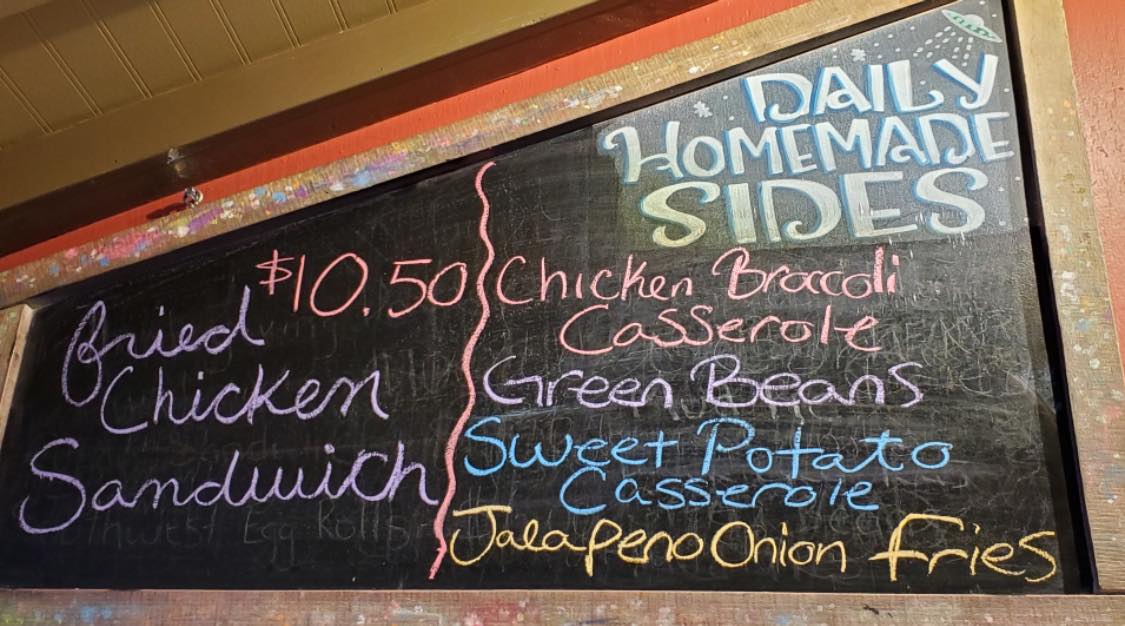 $10.50
Fried
Chicken
Sandwich
DAILY
HOMEMADE
SIDES
Chicken Broccoli
Casserole
Green Beans
Sweet Potato
Casserole
Jalapeno Onion Fries
Egg Rolls